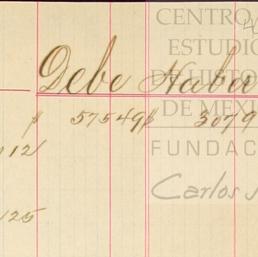 CENTRO
ESTUDIO
DE HISTO
DE MEXI
FUNDAC
Carlos
Debe Haber
$ 57549 $ 3079
112
125